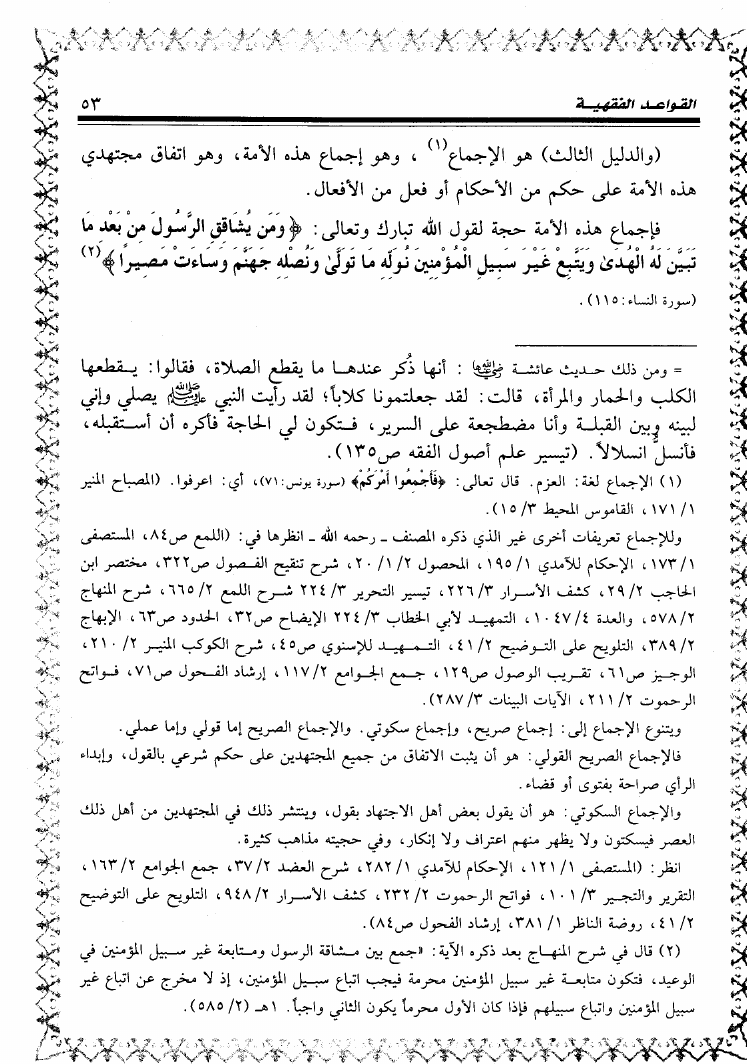 القواعد الفقهية
٥٣
(والدليل الثالث) هو الإجماع(١) ، وهو إجماع هذه الأمة، وهو اتفاق مجتهدي
هذه الأمة على حكم من الأحكام أو فعل من الأفعال.
فإجماع هذه الأمة حجة لقول الله تبارك وتعالى: ﴿وَمَن يُشَاقِقِ الرَّسُولَ مِنْ بَعْدِ مَا
تَبَيَّنَ لَهُ الْهُدَىٰ وَيَتَّبِعْ غَيْرَ سَبِيلِ الْمُؤْمِنِينَ نُوَلِّهِ مَا تَوَلَّىٰ وَنُصْلِهِ جَهَنَّمَ وَسَاءَتْ مَصِيراً﴾(٢)
(سورة النساء: ١١٥).
= ومن ذلك حديث عائشة رضي الله عنها : أنها ذُكر عندها ما يقطع الصلاة، فقالوا: يقطعها
الكلب والحمار والمرأة، قالت: لقد جعلتمونا كلاباً؛ لقد رأيت النبي ﷺ يصلي وإني
لبينه وبين القبلة وأنا مضطجعة على السرير، فتكون لي الحاجة فأكره أن أستقبله،
فأنسلُّ انسلالاً. (تيسير علم أصول الفقه ص١٣٥).
(١) الإجماع لغة: العزم. قال تعالى: ﴿فَأَجْمِعُوا أَمْرَكُمْ﴾ (سورة يونس: ٧١)، أي: اعرفوا. (المصباح المنير
١/ ١٧١، القاموس المحيط ٣/ ١٥).
وللإجماع تعريفات أخرى غير الذي ذكره المصنف ـ رحمه الله ـ انظرها في: (اللمع ص٨٤، المستصفى
١/ ١٧٣، الإحكام للآمدي ١/ ١٩٥، المحصول ٢/ ١/ ٢٠، شرح تنقيح الفصول ص٣٢٢، مختصر ابن
الحاجب ٢/ ٢٩، كشف الأسرار ٣/ ٢٢٦، تيسير التحرير ٣/ ٢٢٤ شرح اللمع ٢/ ٦٦٥، شرح المنهاج
٢/ ٥٧٨، والعدة ٤/ ١٠٤٧، التمهيد لأبي الخطاب ٣/ ٢٢٤ الإيضاح ص٣٢، الحدود ص٦٣، الإبهاج
٢/ ٣٨٩، التلويح على التوضيح ٢/ ٤١، التمهيد للإسنوي ص٤٥، شرح الكوكب المنير ٢/ ٢١٠،
الوجيز ص٦١، تقريب الوصول ص١٢٩، جمع الجوامع ٢/ ١١٧، إرشاد الفحول ص٧١، فواتح
الرحموت ٢/ ٢١١، الآيات البينات ٣/ ٢٨٧).
ويتنوع الإجماع إلى: إجماع صريح، وإجماع سكوتي. والإجماع الصريح إما قولي وإما عملي.
فالإجماع الصريح القولي: هو أن يثبت الاتفاق من جميع المجتهدين على حكم شرعي بالقول، وإبداء
الرأي صراحة بفتوى أو قضاء.
والإجماع السكوتي: هو أن يقول بعض أهل الاجتهاد بقول، وينتشر ذلك في المجتهدين من أهل ذلك
العصر فيسكتون ولا يظهر منهم اعتراف ولا إنكار، وفي حجيته مذاهب كثيرة.
انظر: (المستصفى ١/ ١٢١، الإحكام للآمدي ١/ ٢٨٢، شرح العضد ٢/ ٣٧، جمع الجوامع ٢/ ١٦٣،
التقرير والتجير ٣/ ١٠١، فواتح الرحموت ٢/ ٢٣٢، كشف الأسرار ٢/ ٩٤٨، التلويح على التوضيح
٢/ ٤١، روضة الناظر ١/ ٣٨١، إرشاد الفحول ص٨٤).
(٢) قال في شرح المنهاج بعد ذكره الآية: «جمع بين مشاقة الرسول ومتابعة غير سبيل المؤمنين في
الوعيد، فتكون متابعة غير سبيل المؤمنين محرمة فيجب اتباع سبيل المؤمنين، إذ لا مخرج عن اتباع غير
سبيل المؤمنين واتباع سبيلهم فإذا كان الأول محرماً يكون الثاني واجباً. ١هـ (٢/ ٥٨٥).